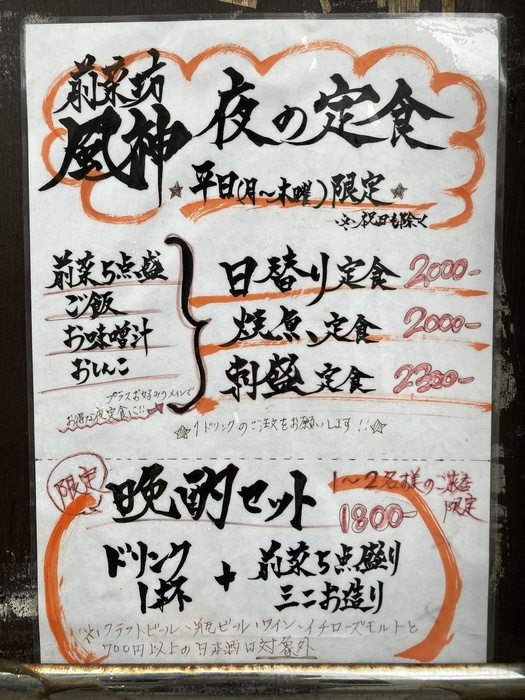 前菜坊
風神
夜の定食
☆平日(月〜木曜)限定☆
※祝日も除く
前菜5点盛
ご飯
お味噌汁
おしんこ
プラスお好みのメインで
お得な夜定食に!!
日替り定食 2,000-
焼魚定食 2000-
刺盛定食 2300-
☆1ドリンクのご注文をお願いします!!☆
限定
晩酌セット
1〜2名様のご来店
限定
1800-
ドリンク
1杯
+
前菜5点盛り
ミニお造り
※クラフトビール、瓶ビール、ワイン、イチローズモルトと
700円以上の日本酒は対象外